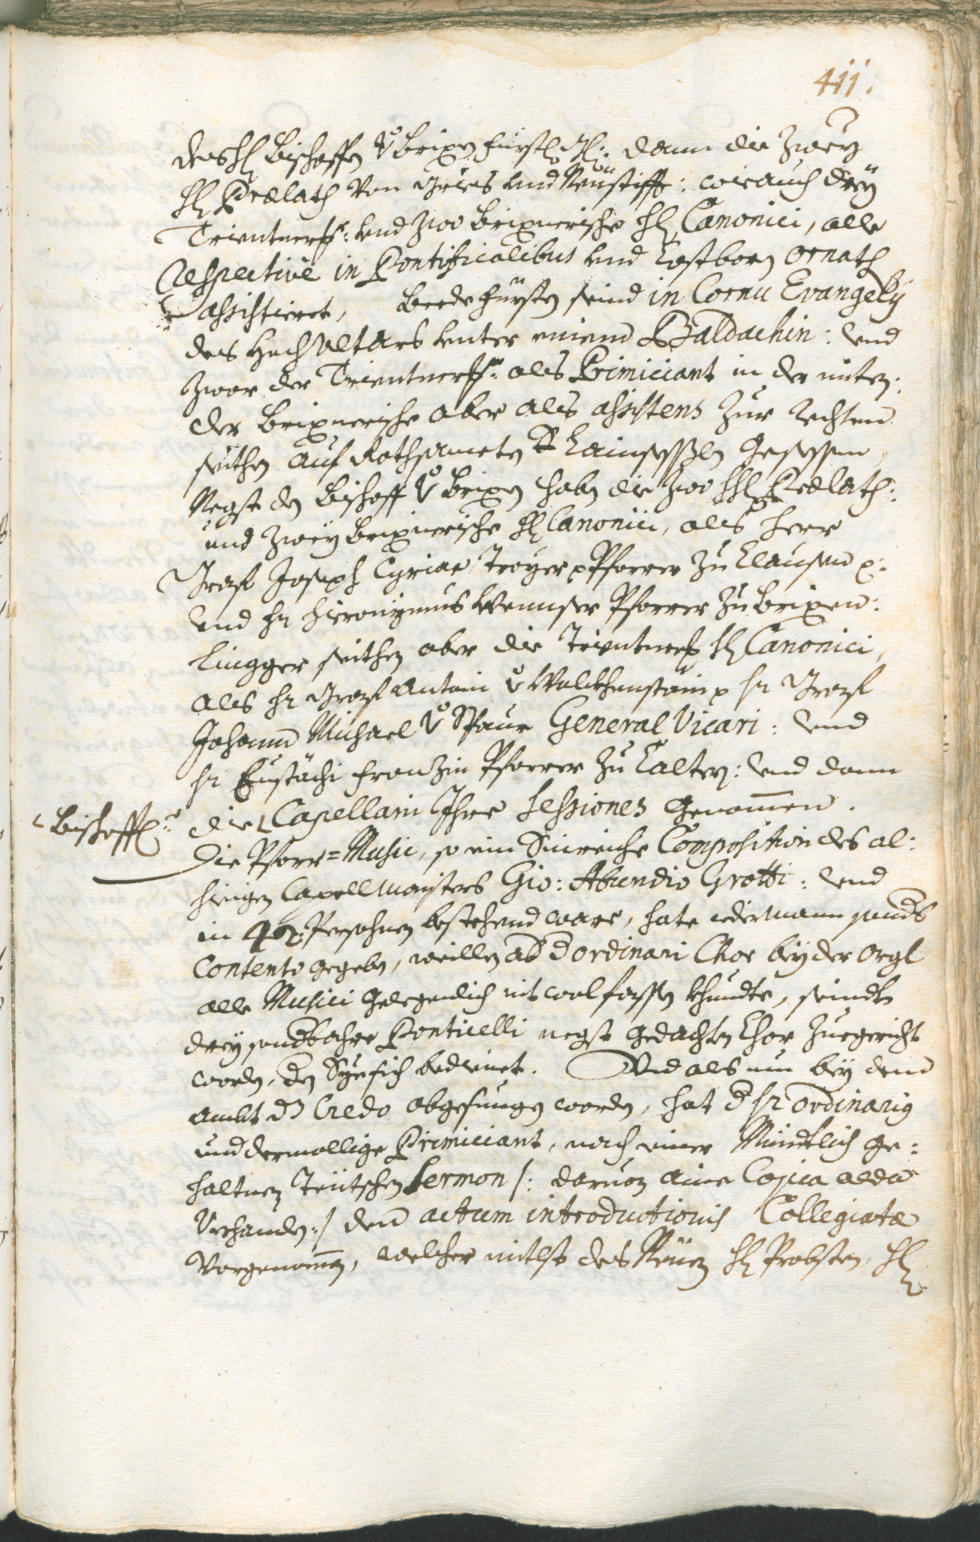 411.
des H: Bischoffen v: Brixen Fürstl: Gl: dann die zwey
H: Prælathen von Grieß und Neustifft: wie auch drey
Trientner: und zwo Brixnerische H: Canonici, alle
respective in Pontificalibus und Costbaren ornath
assistieret, Beede Fürsten seind in Cornu Evangelÿ
des Hoch Altars unter einem Baldachin: und
zwar der Trientner: als Primiciant in der miten:
der Brixnerische aber als assistens zur rechten
seithen auf Roth Lainsesslen gesessen
Negst den Bischoff v: Brixen haben die zwo H: Prælathen:
und zwey Brixnerische H: Canonici, als Herr
Graf Joseph Cyriac Troyer Pfarrer zu Clausen
und Hr: Hieronymus Wenser Pfarrer zu Brixen:
Lingger seithen aber die Trientner H: Canonici,
als Hr: Graf Antoni v: Wolckhenstain Hr: Graf
Johann Michael v: Spaur General Vicari: und
Hr: Eustachi Franzin Pfarrer zu Caltern: und dann
Bischoffl:
die Capellani Ihre Sessiones genomen.
Die Pfarr=Music, so ein Sinreiche Composition des al:
hiesigen Capellmaisters Gio: Abundio Grotti: und
in Persohnen bestehend ware, hate iedermann sonders
Contento gegeben, weillen ordinari Chor bey der Orgl
alle Musici gelegenlich nit wol fassen khundte, seindt
drey sondbahre Ponticelli negst gedachten Chor zuegericht
worden, bedienet. Und als nun bey dem
Ambt Credo abgesungen worden, hat Hr: ordinarius
und dermallige Primiciant, nach einer Mündtlich ge:
haltnen Teütschen Sermon /: daruon aine Copia alda
Verhanden :/ den actum introductionis Collegiatæ
Vorgenomen, welcher mitlst des Neuen H: Probsten, H: